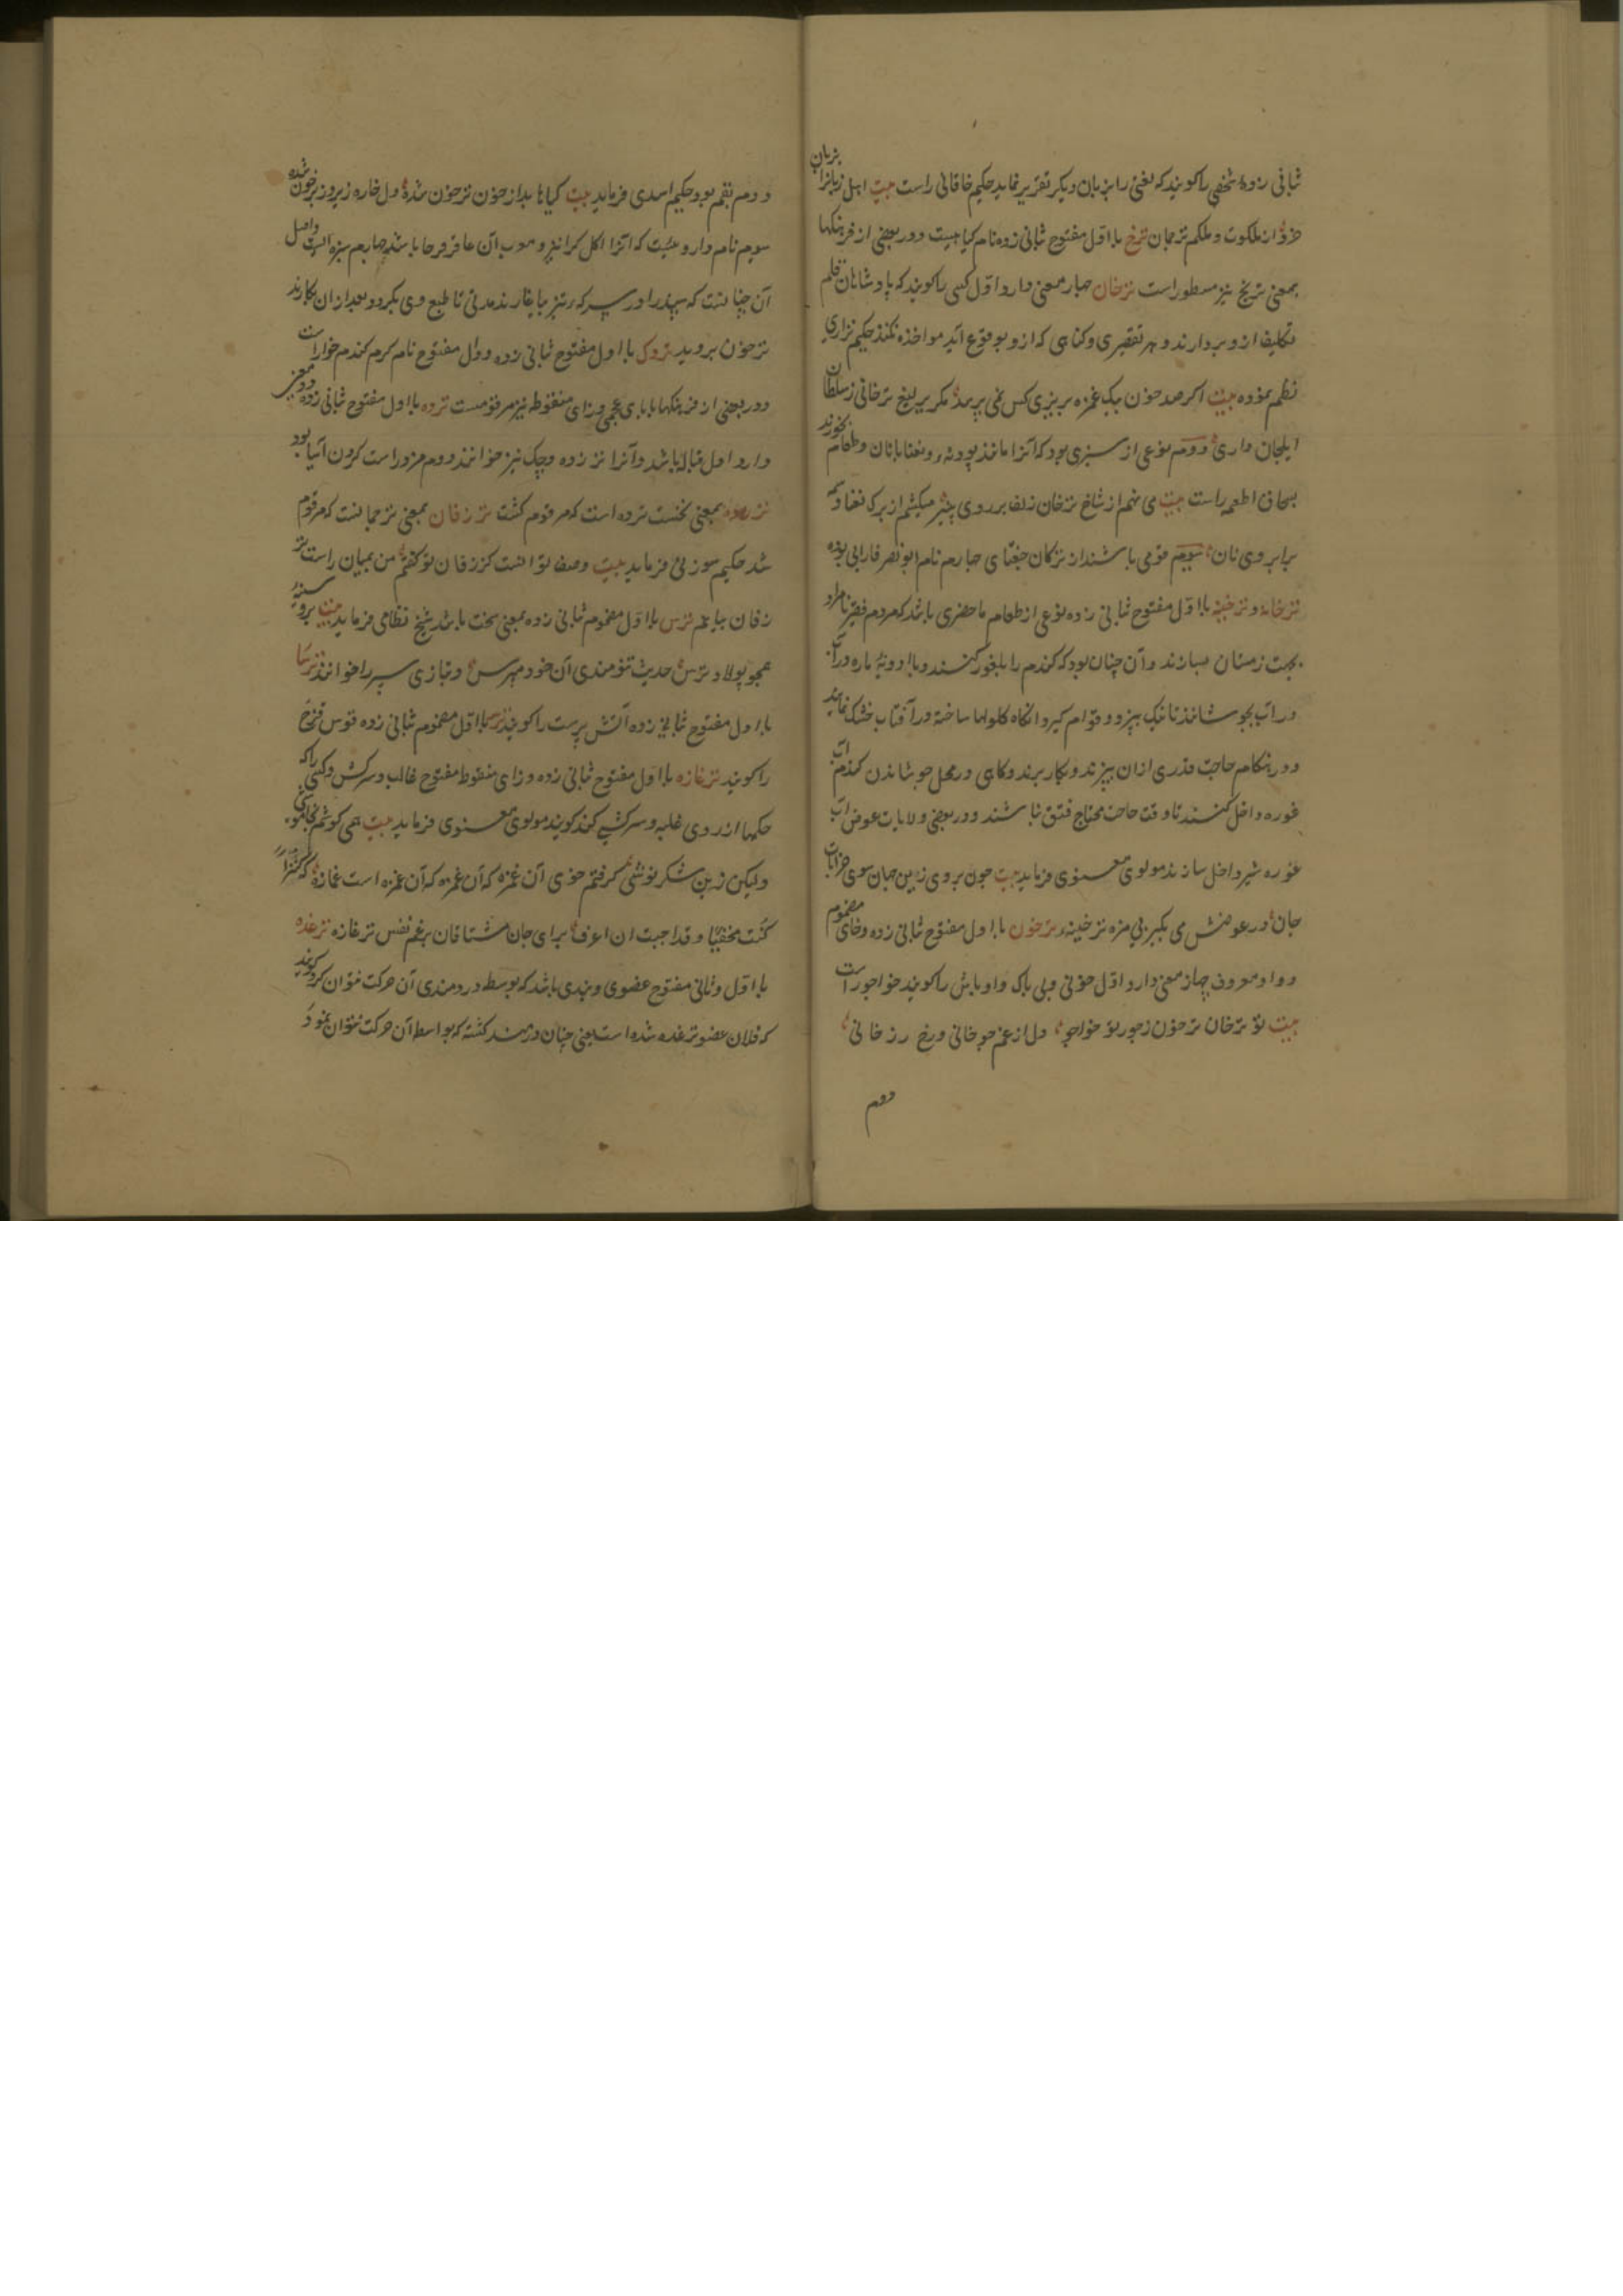 ثانی زده شخصی را کویند که لغتی را بزبان دیکر تقریر نماید حکیم خاقانی راست بیت اهل زبانرا بزبان
خرد از ملکوت و ملکم ترجمان ترخ با اول مفتوح ثانی زده نام کیاهیست و در بعضی از فرهنکها
بمعنی ترنج نیز مسطور است ترخان چهار معنی دارد اول کسی را کویند که پادشاهان قلم
تکلیف از و بردارند و هر تقصیری و کناهی که از و بوقوع آید مواخذه نکنند حکیم نزاری
نظم نموده بیت اکر صد خون بیک غمزه بریزی کس نمی پرسد مکر یرلیغ ترخانی ز سلطان
ایلجان داری دوم نوعی از سبزی بود که آنرا مانند پودنه و نعنا با نان و طعام بخورند
بسحاق اطعمه راست بیت می نهم از شاخ ترخان زلف بر روی پنیر میکشم از برک نعنا وسمه
بر ابروی نان سیوم قومی باشند از ترکان جغتای چهارم نام ابو نصر فارابی بوده
ترخانه و ترخینه با اول مفتوح ثانی زده نوعی از طعام ما حضری باشد که مردم فقیر نامراد
بجهت زمستان بسازند و آن چنان بود که کندم را بلغور کنند و با ادویۀ حاره در آب
در آب بجوشانند تا نیک بپزد و قوام کیرد انکاه کلولها ساخته در آفتاب خشک نمایند
و در هنکام حاجت قدری ازان بپزند و بکار برند و کاهی در محل جوشاندن کندم آب
غوره داخل کنند تا وقت حاجت محتاج قتق نباشند و در بعضی ولایات عوض آب
غوره شیر داخل سازند مولوی معنوی فرماید بیت چون بروی زین جهان سوی خرابات
جان در عوض می بکیر بی مزه ترخینه ترخون با اول مفتوح ثانی زده و خای مضموم
و واو معروف چهار معنی دارد اول خونی و بی باک و اوباش را کویند خواجو راست
بیت تو ترخان ترخون ز جور تو خواجو دل از غم جو خانی و رخ زر خانی
دوم
دوم بقم بود حکیم اسدی فرماید بیت کیاها بد از خون ترخون شده دل خاره زیر و زبر خون شده
سیوم نام داروئیست که آنرا اکل کرا نیز و معرب آن عاقر قرحا باشد چهارم سبزه ایست و اصل
آن چنانست که سپند را در سرکه تیز بیاغارند مدتی تا طبع وی بکردد و بعد ازان بکارند
ترخون بروید تردک با اول مفتوح ثانی زده و دال مفتوح نام کرم کندم خوار است
و در بعضی از فرهنکها با بای عجمی و زای منقوطه نیز مرقومست ترده با اول مفتوح ثانی زده دو معنی
دارد اول قباله باشد و آنرا ترزده و چک نیز خوانند دوم مزد راست کردن آسیا بود
ترزده بمعنی نخست ترده است که مرقوم کشت ترزفان بمعنی ترجمانست که مرقوم
شد حکیم سوزنی فرماید بیت وصف تو انست کز زفان تو کفتم من بمیان راست تر
زفان بیانم ترس با اول مضموم ثانی زده بمعنی سخت باشد شیخ نظامی فرماید بیت بروی سینۀ
همچو پولاد ترس حدیث تنومندی آن خود مپرس و بتازی سپر را خوانند ترسا
با اول مفتوح ثانی زده آتش پرست را کویند ترسه با اول مضموم ثانی زده قوس قزح
را کویند ترغازه با اول مفتوح ثانی زده و زای منقوط مفتوح غالب و سرکش و کسی را که
حکمها از روی غلبه و سرکشی کند کویند مولوی معنوی فرماید بیت همی کوشم بخاموشی
ولیکن زین شکرنوشی کرفتم خوی آن غمزه که آن غمزه که آن غمزه است غمازه که کنزاً
کنت مخفیاً و قد احببت ان اعرف برای جان مشتاقان برغم نفس ترغازه ترغده
با اول و ثانی مفتوح عضوی و بندی باشد که بوسطه دردمندی آن حرکت نتوان کرد کویند
که فلان عضو ترغده شده است یعنی چنان دردمند کشته که بواسطه آن حرکت نتوان نمود